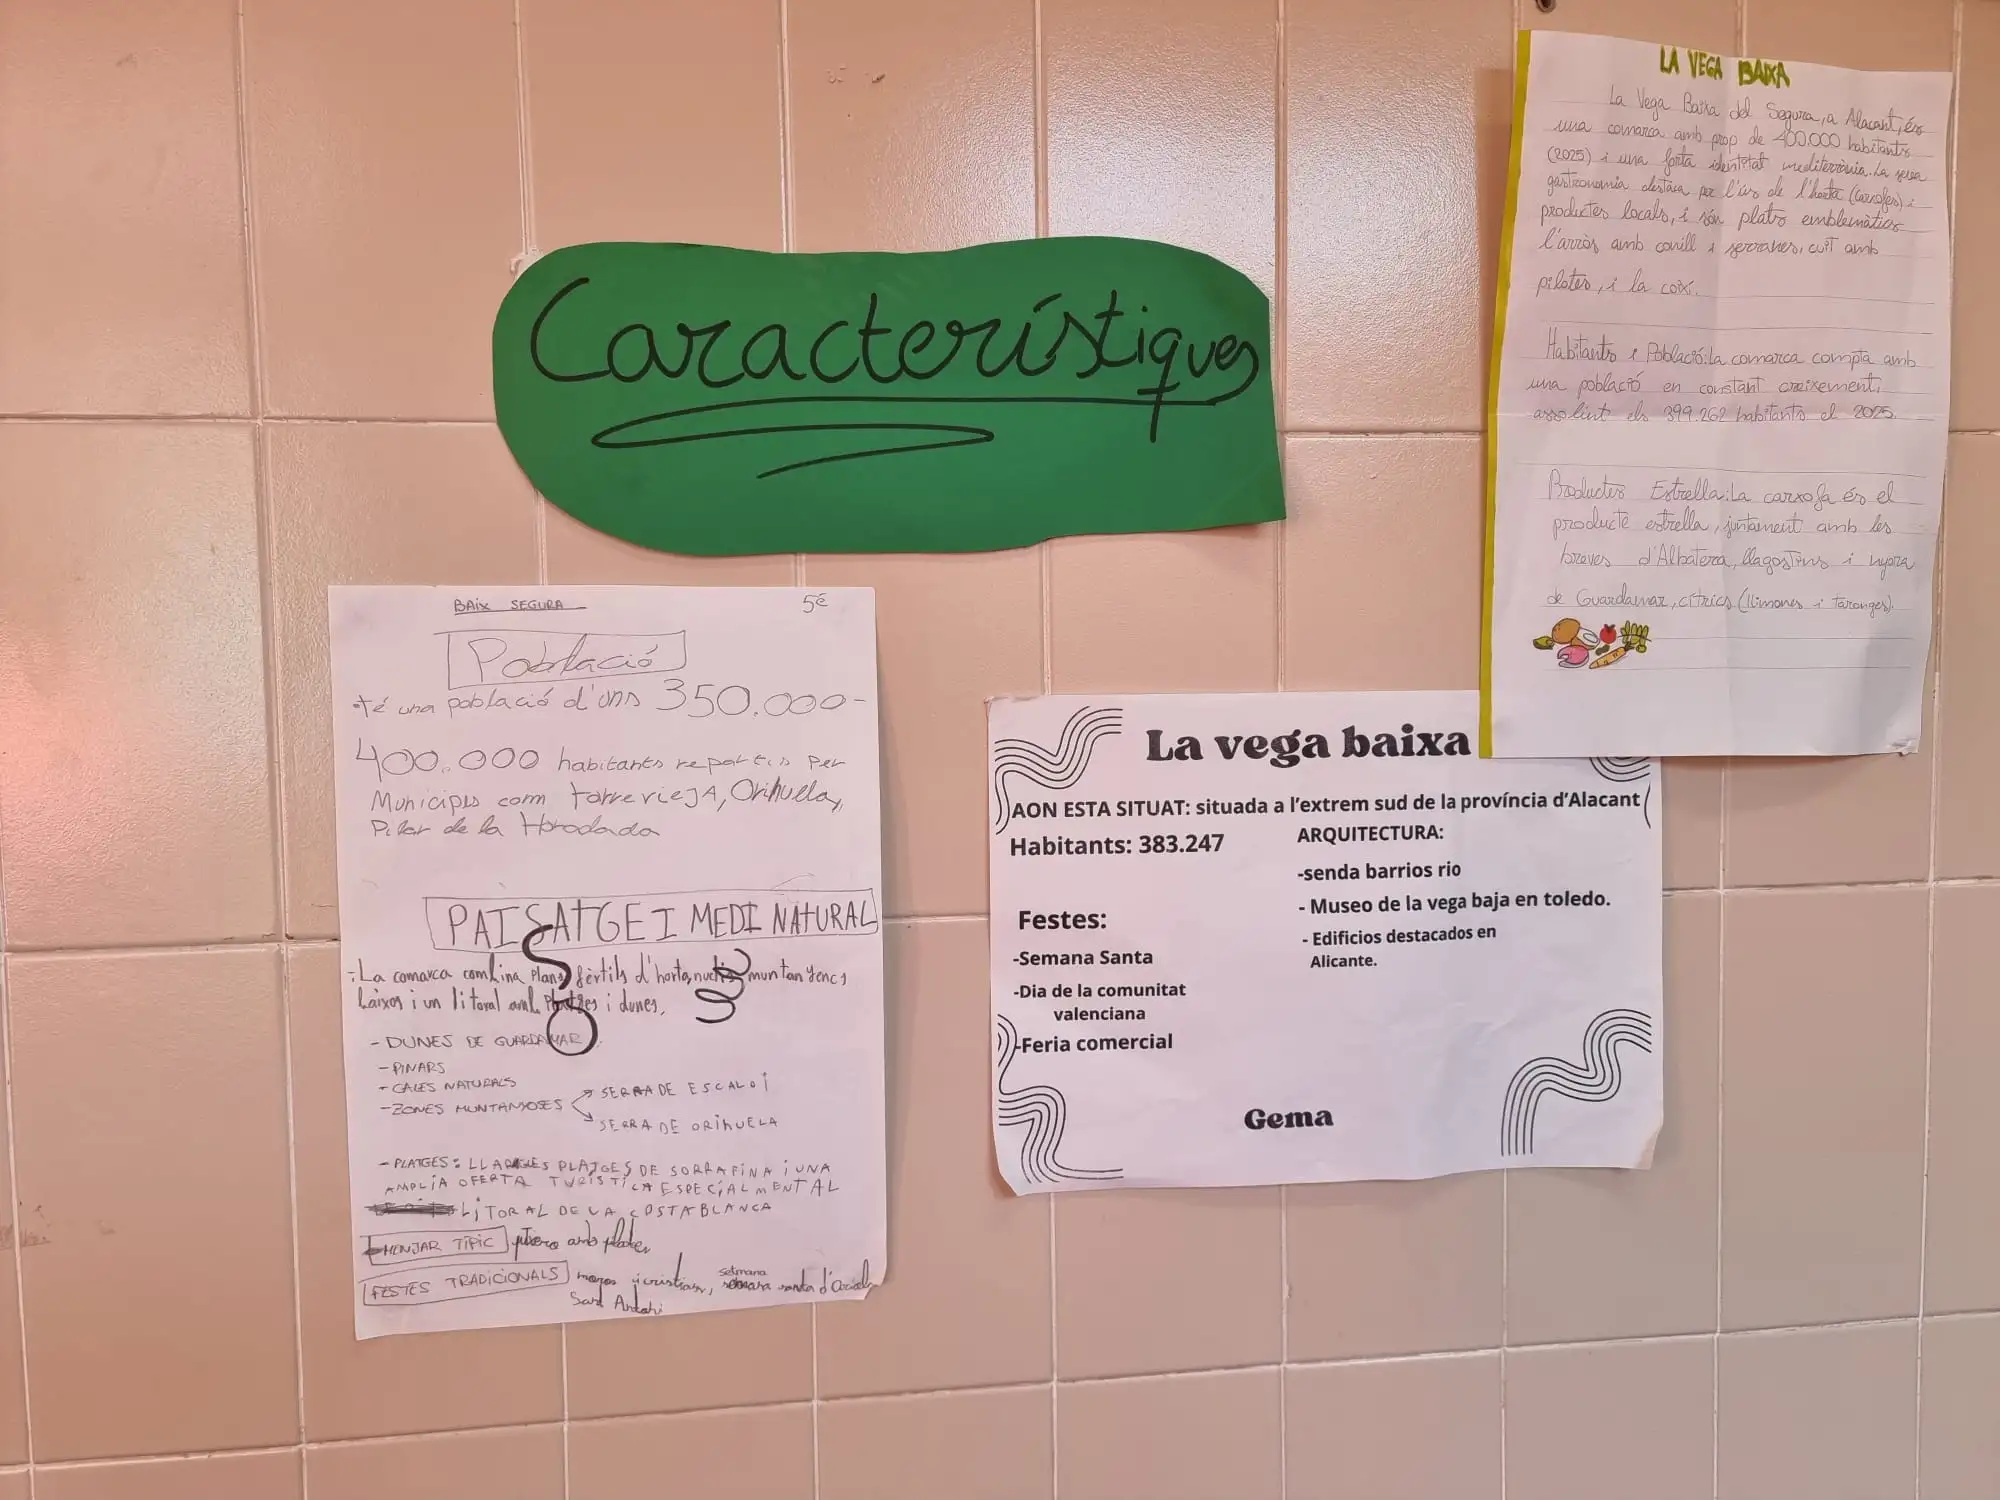 Característiques
BAIX SEGURA 5é
Població
té una població d'uns 350.000-
400.000 habitants repartis per
Municipis com torrevieJA, Orihuela,
Pilar de la Horadada
PAISATGE I MEDI NATURAL
-La comarca combina plans fèrtils d'horta, muntanyencs
baixos i un litoral amb platges i dunes.
- DUNES DE GUARDAMAR
- PINARS
- CALES NATURALS
- ZONES MUNTANYOSES
SERRA DE ESCALOI
SERRA DE ORIHUELA
- PLATGES: LLARGUES PLATGES DE SORRA FINA i UNA
AMPLIA OFERTA TURISTICA ESPECIALMENT AL
LITORAL DE LA COSTA BLANCA
MENJAR TÍPIC
FESTES TRADICIONALS moros i cristians, setmana santa
La vega baixa
AON ESTA SITUAT: situada a l'extrem sud de la província d'Alacant
Habitants: 383.247
ARQUITECTURA:
-senda barrios rio
- Museo de la vega baja en toledo.
- Edificios destacados en
Alicante.
Festes:
-Semana Santa
-Dia de la comunitat
valenciana
-Feria comercial
Gema
LA VEGA BAIXA
La Vega Baixa del Segura, a Alacant, és
una comarca amb prop de 400.000 habitants
(2025) i una forta identitat mediterrània. La seua
gastronomia destaca per l'ús de l'horta (carxofes) i
productes locals, i són plats emblemàtics
l'arròs amb conill i serranes, cuit amb
pilotes, i la coixí.
Habitants i Població: La comarca compta amb
una població en constant creixement,
assolint els 399.262 habitants el 2025.
Productes Estrella: La carxofa és el
producte estrella, juntament amb les
breves d'Albatera, llagostins i nyora
de Guardamar, cítrics (llimones i taronges).